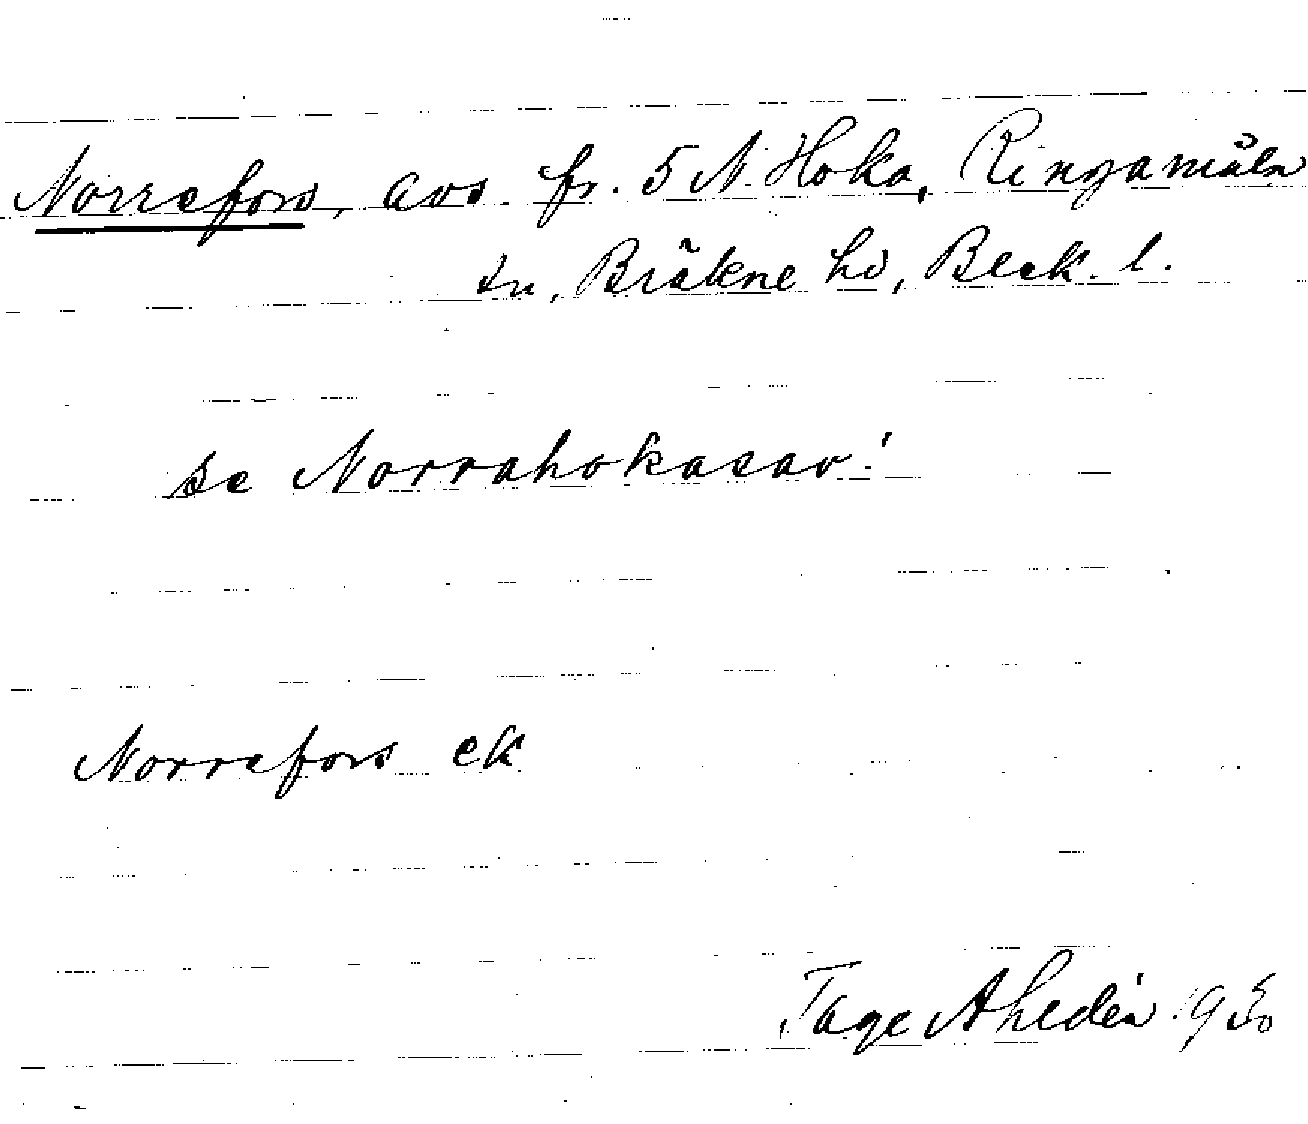 Norrefors, avs. fr. 5 N. Hoka, Ringamåla
sn, Bräkne hd, Blek. l.
se Norrahokasav!
Norrefors ek
Tage Ahldén 1930